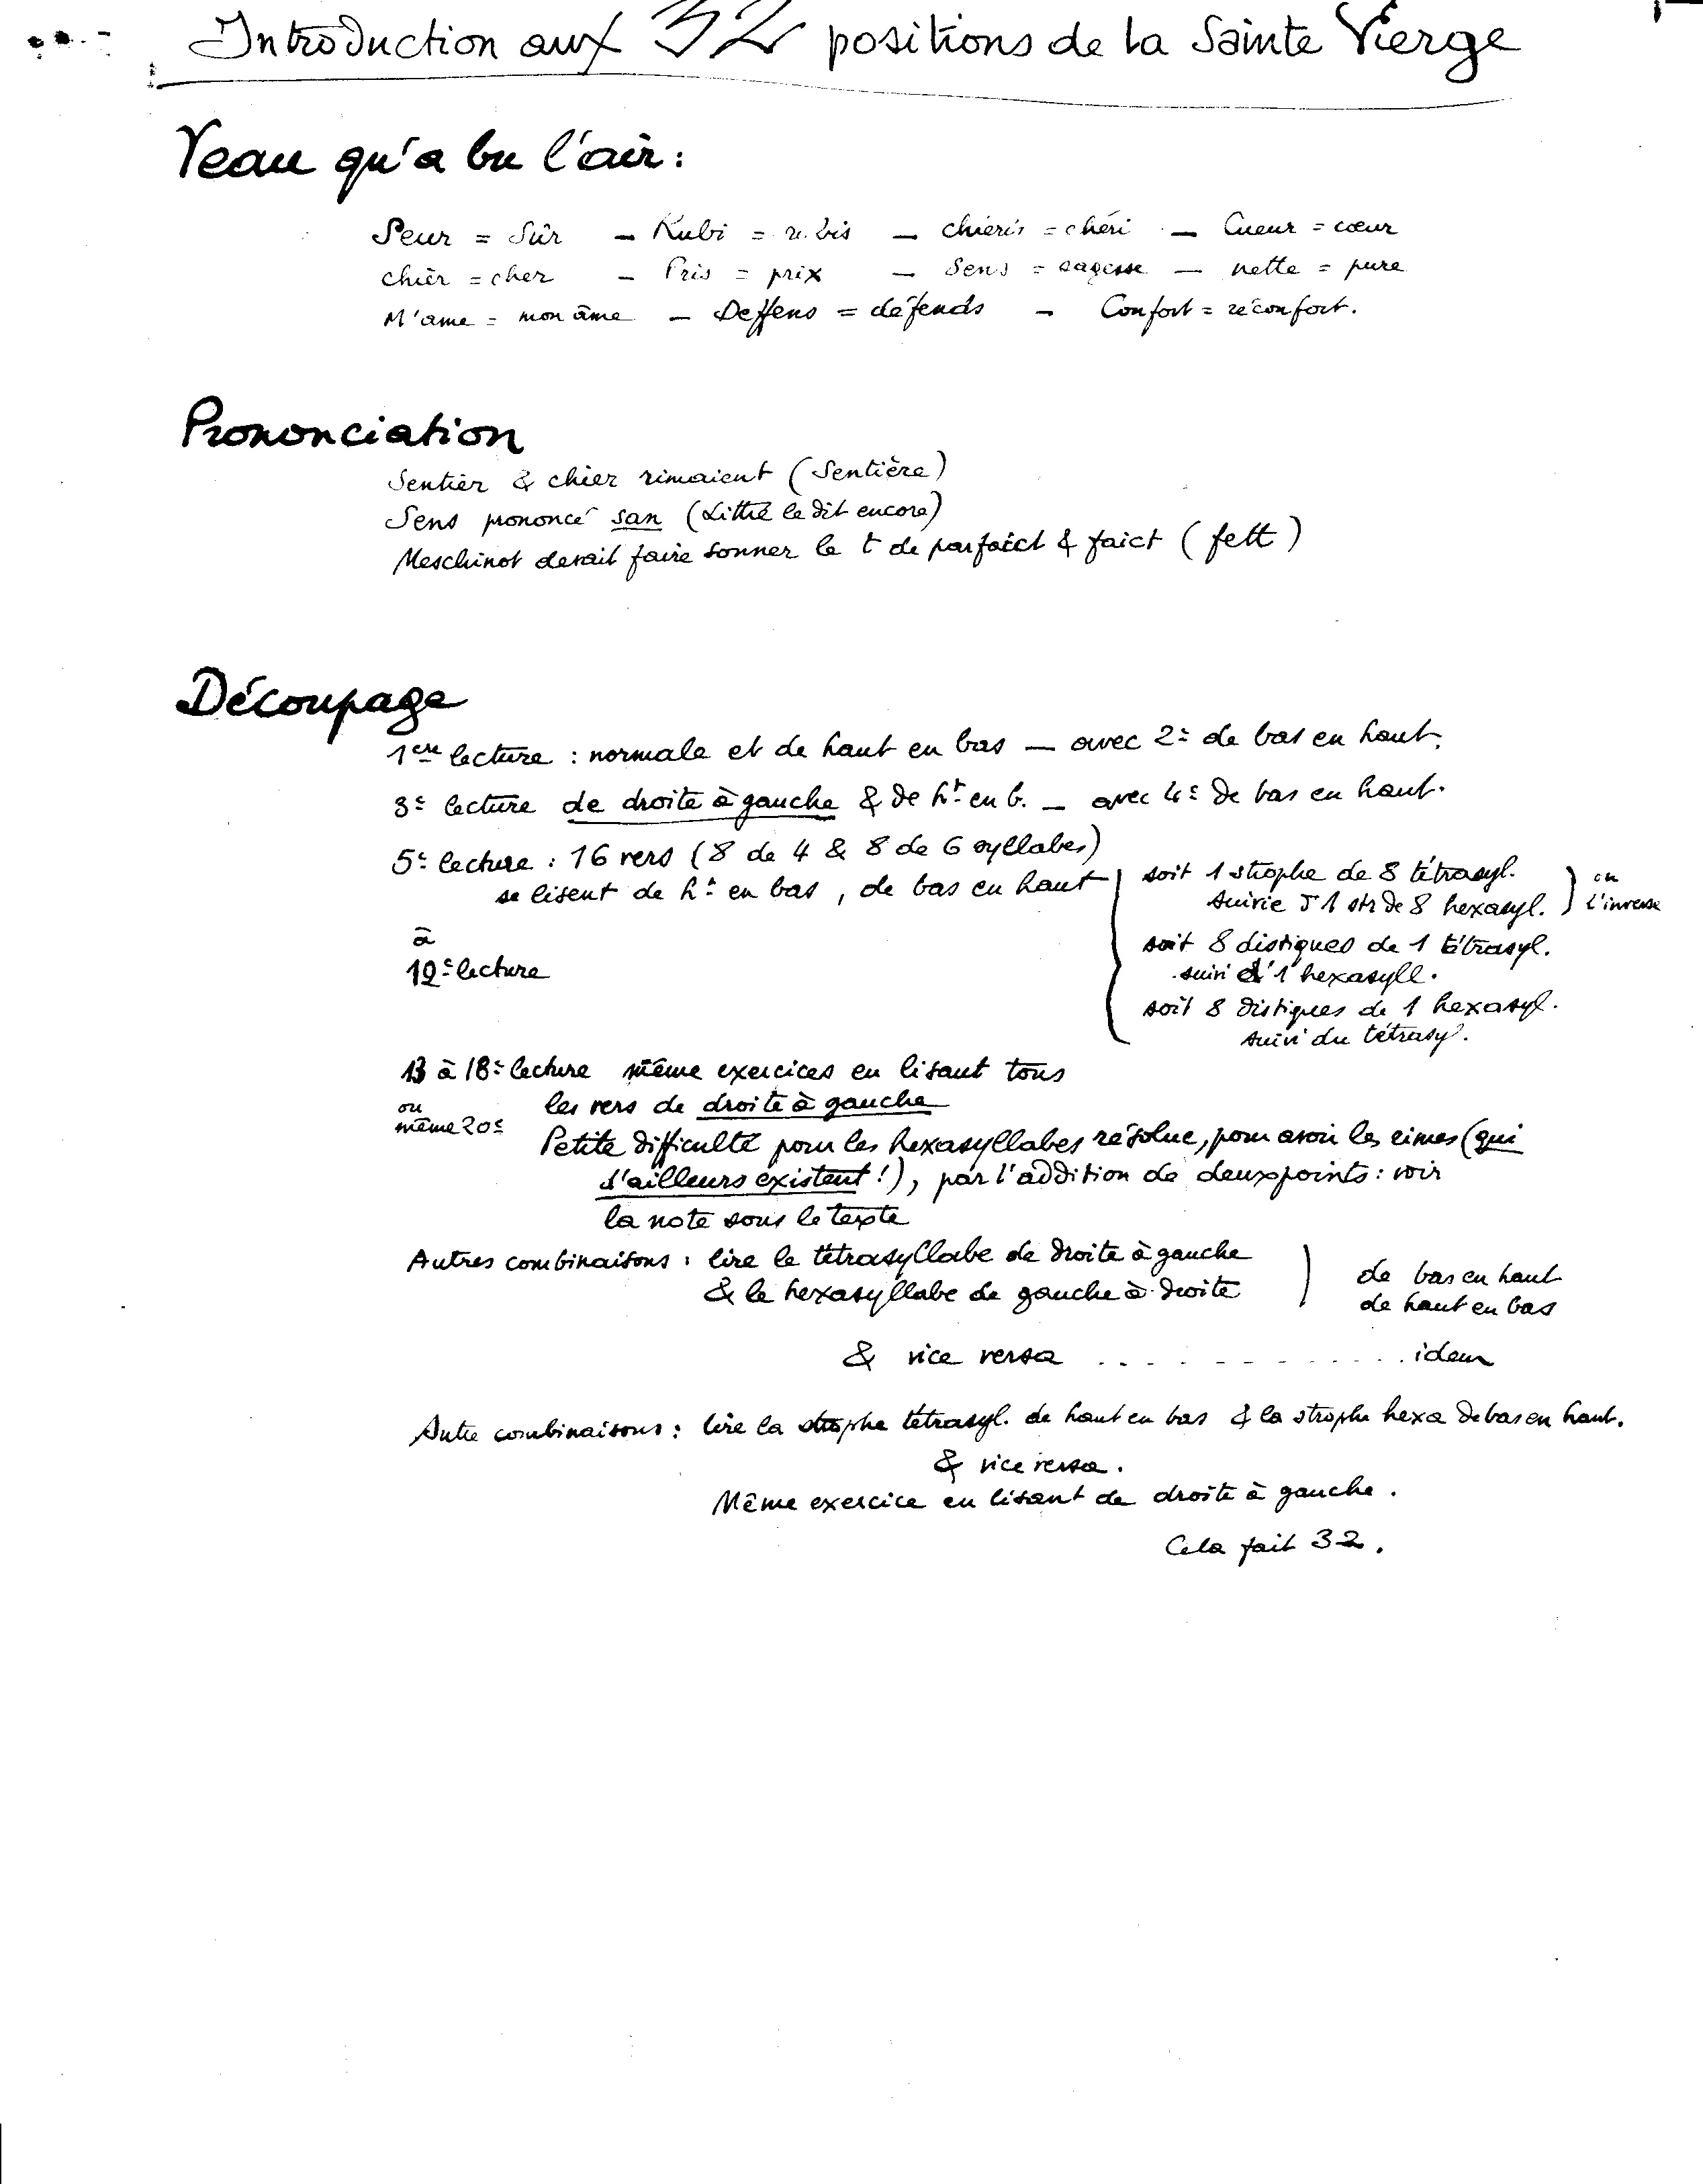 Introduction aux 32 positions de la Sainte Vierge
Veau qu'a bu l'air :
Seur = Sûr – Rubi = rubis – chieris = chéri – Cueur = cœur
chièr = cher – Pris = prix – Sens = sagesse – nette = pure
M'ame = mon âme – Deffens = défends – Confort = réconfort.
Prononciation
Sentier & chier rimaient (Sentière)
Sens prononcé san (Littré le dit encore)
Meschinot devait faire sonner le t de parfaict & faict (fett)
Découpage
1ere lecture : normale et de haut en bas – avec 2e de bas en haut.
3e lecture de droite à gauche & de ht en b. – avec 4e de bas en haut.
5e lecture : 16 vers (8 de 4 & 8 de 6 syllabes)
se lisent de ht en bas, de bas en haut
soit 1 strophe de 8 tétrasyl.
suivie d 1 str de 8 hexasyl.
ou
l'inverse
soit 8 distiques de 1 tétrasyl.
suivi d'1 hexasyll.
soit 8 distiques de 1 hexasyl.
suivi du tétrasyl.
à
12e lecture
13 à 18e lecture même exercices en lisant tous
les vers de droite à gauche
ou
même 20e
Petite difficulté pour les hexasyllabes résolue, pour avoir les rimes (qui
d'ailleurs existent !), par l'addition de deux points : voir
la note sous le texte
Autres combinaisons : lire le tétrasyllabe de droite à gauche
& le hexasyllabe de gauche à droite
de bas en haut
de haut en bas
& vice versa . . . . . . . . . . . . . idem
Autre combinaisons : lire la strophe tétrasyl. de haut en bas & la strophe hexa de bas en haut.
& vice versa.
Même exercice en lisant de droite à gauche.
Cela fait 32.